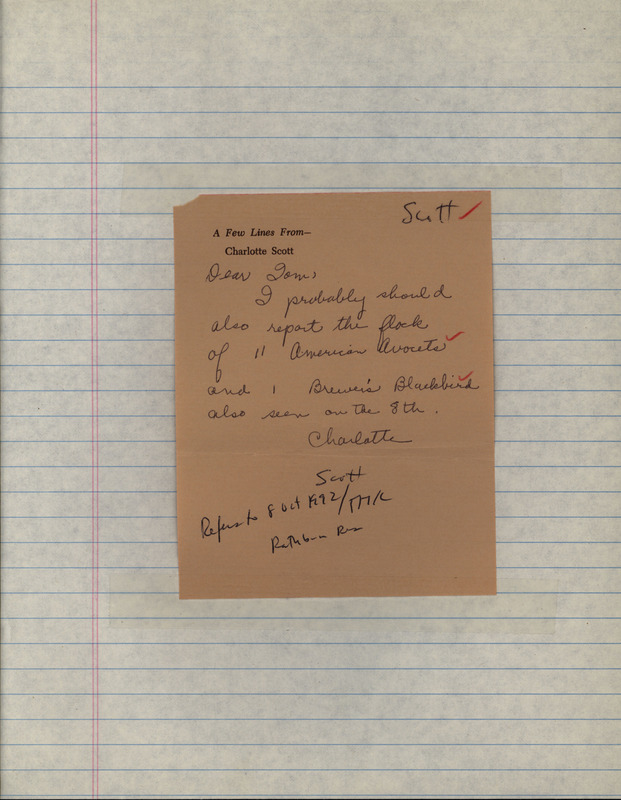 Scott
A Few Lines From—
Charlotte Scott
Dear Tom,
I probably should
also report the flock
of 11 American Avocets
and 1 Brewer's Blackbird
also seen on the 8th.
Charlotte
Scott
Refers to 8 Oct 1992/THK
Rathbun Res